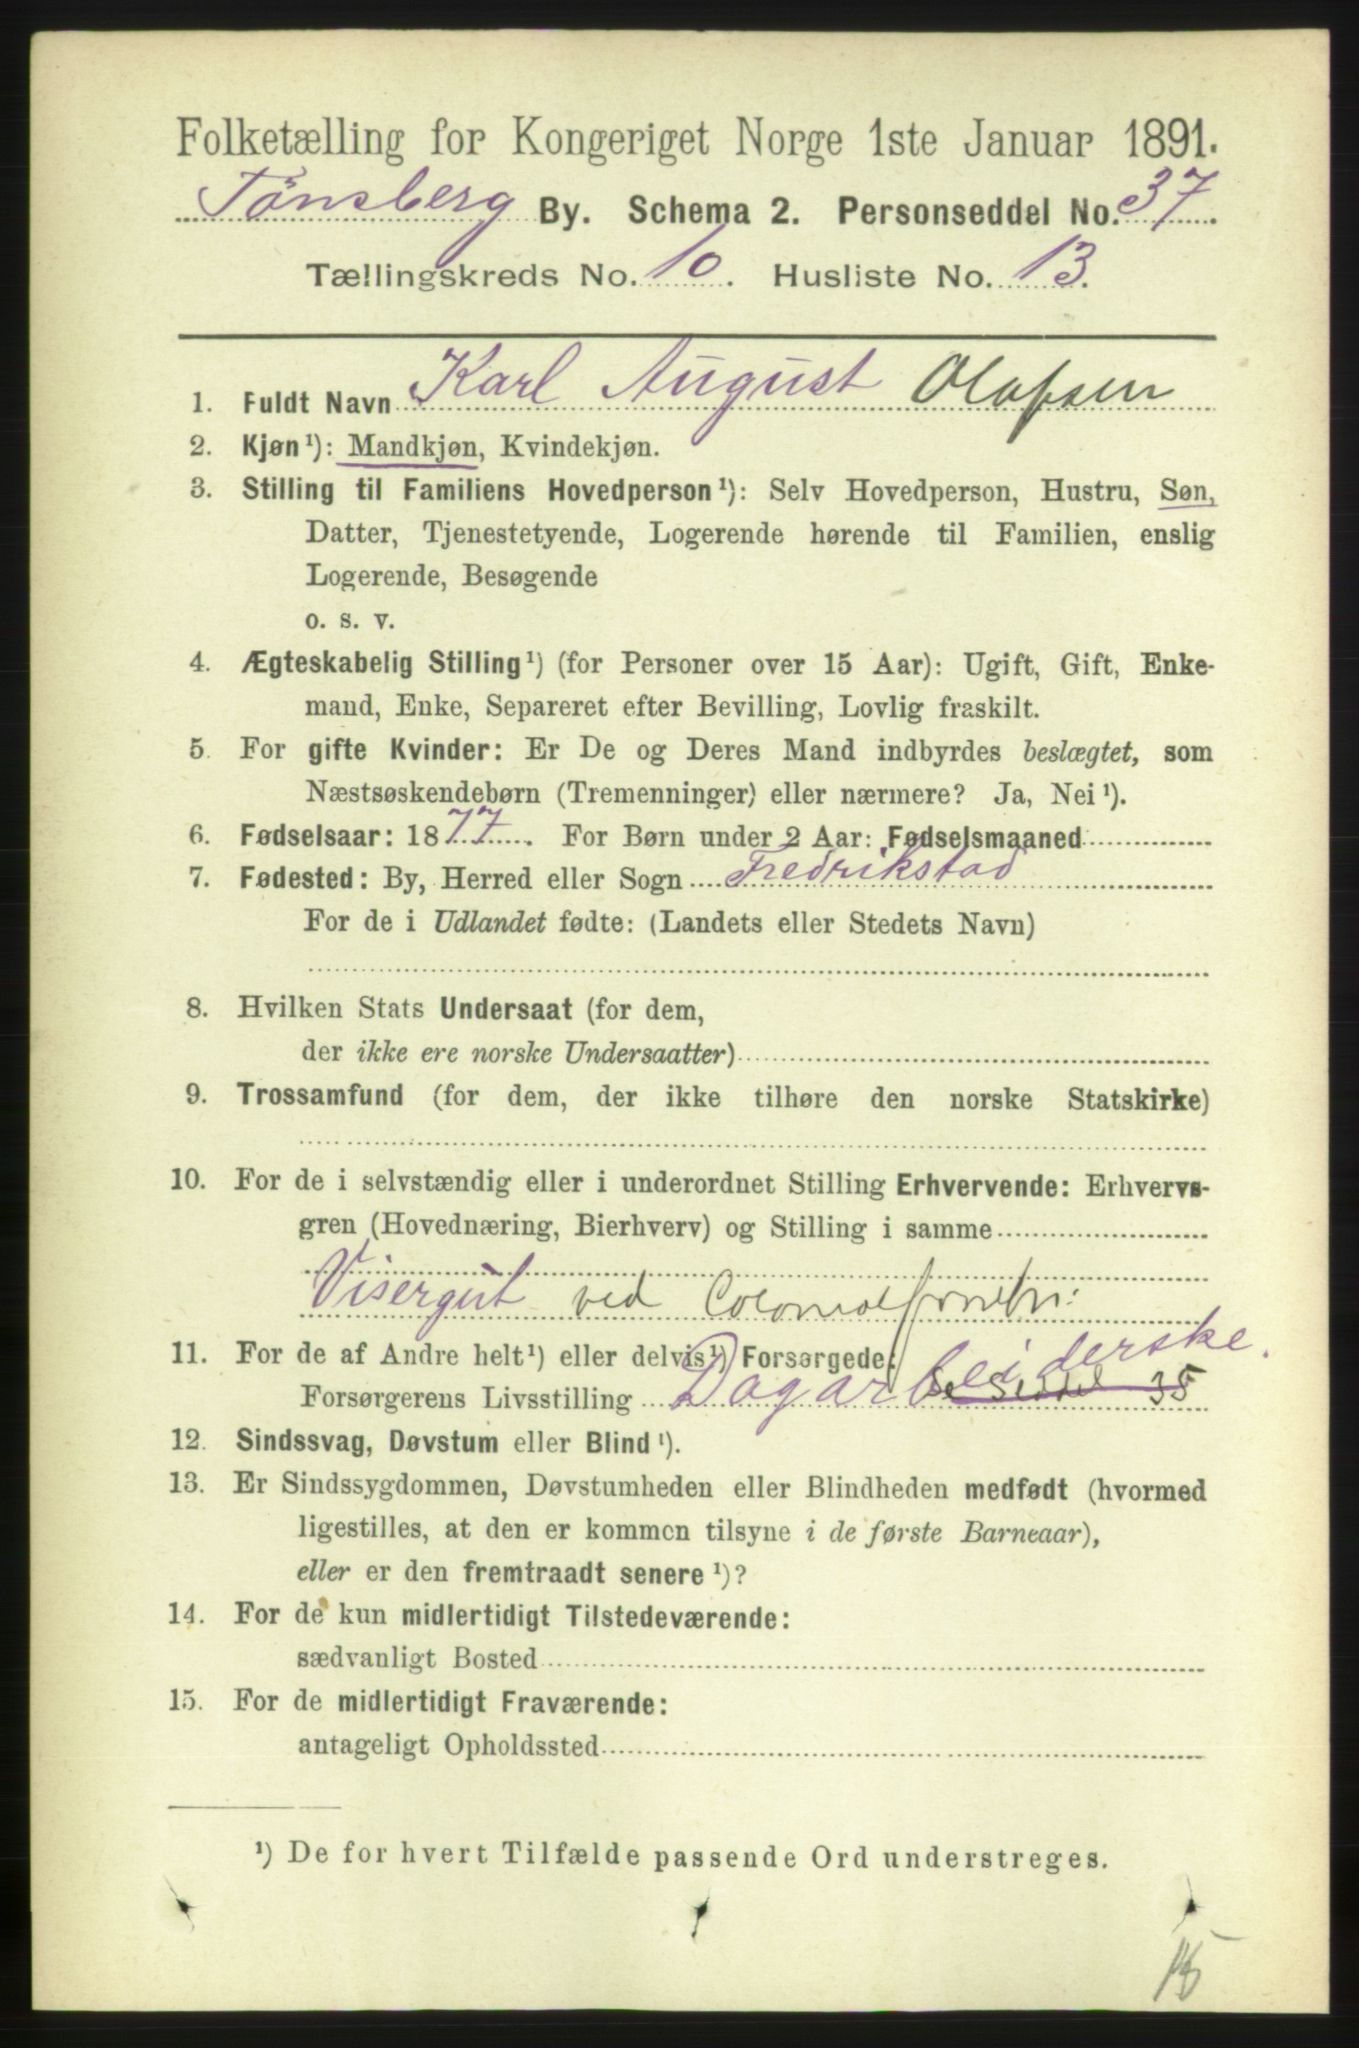 Folketælling for Kongeriget Norge 1ste Januar 1891.
Tønsberg By. Schema 2. Personseddel No. 37.
Tællingskreds No. 10. Husliste No. 13.
1. Fuldt Navn Karl August Olafsen
2. Kjøn¹): Mandkjøn, Kvindekjøn.
3. Stilling til Familiens Hovedperson¹): Selv Hovedperson, Hustru, Søn,
Datter, Tjenestetyende, Logerende hørende til Familien, enslig
Logerende, Besøgende
o. s. v.
4. Ægteskabelig Stilling¹) (for Personer over 15 Aar): Ugift, Gift, Enke-
mand, Enke, Separeret efter Bevilling, Lovlig fraskilt.
5. For gifte Kvinder: Er De og Deres Mand indbyrdes beslægtet, som
Næstsøskendebørn (Tremenninger) eller nærmere? Ja, Nei¹).
6. Fødselsaar: 1877. For Børn under 2 Aar: Fødselsmaaned
7. Fødested: By, Herred eller Sogn Fredrikstad
For de i Udlandet fødte: (Landets eller Stedets Navn)
8. Hvilken Stats Undersaat (for dem,
der ikke ere norske Undersaatter)
9. Trossamfund (for dem, der ikke tilhøre den norske Statskirke)
10. For de i selvstændig eller i underordnet Stilling Erhvervende: Erhvervs-
gren (Hovednæring, Bierhverv) og Stilling i samme
Visergut ved
11. For de af Andre helt¹) eller delvis¹) Forsørgede:
Forsørgerens Livsstilling Dagarbeiderske. Se Seddel 35
12. Sindssvag, Døvstum eller Blind¹).
13. Er Sindssygdommen, Døvstumheden eller Blindheden medfødt (hvormed
ligestilles, at den er kommen tilsyne i de første Barneaar),
eller er den fremtraadt senere¹)?
14. For de kun midlertidigt Tilstedeværende:
sædvanligt Bosted
15. For de midlertidigt Fraværende:
antageligt Opholdssted
¹) De for hvert Tilfælde passende Ord understreges.